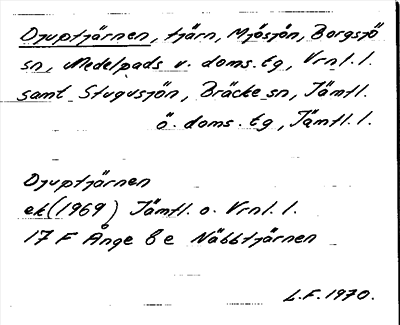 Djuptjärnen, tjärn, Mjösjön, Borgsjö
sn, Medelpads v. doms. tg, Vrnl. l.
samt Stugusjön, Bräcke sn, Jämtl.
ö. doms. tg, Jämtl. l.
Djuptjärnen
ek (1969) Jämtl. o. Vrnl. l.
17 F Ånge 6 e Näbbtjärnen
L.F. 1970.